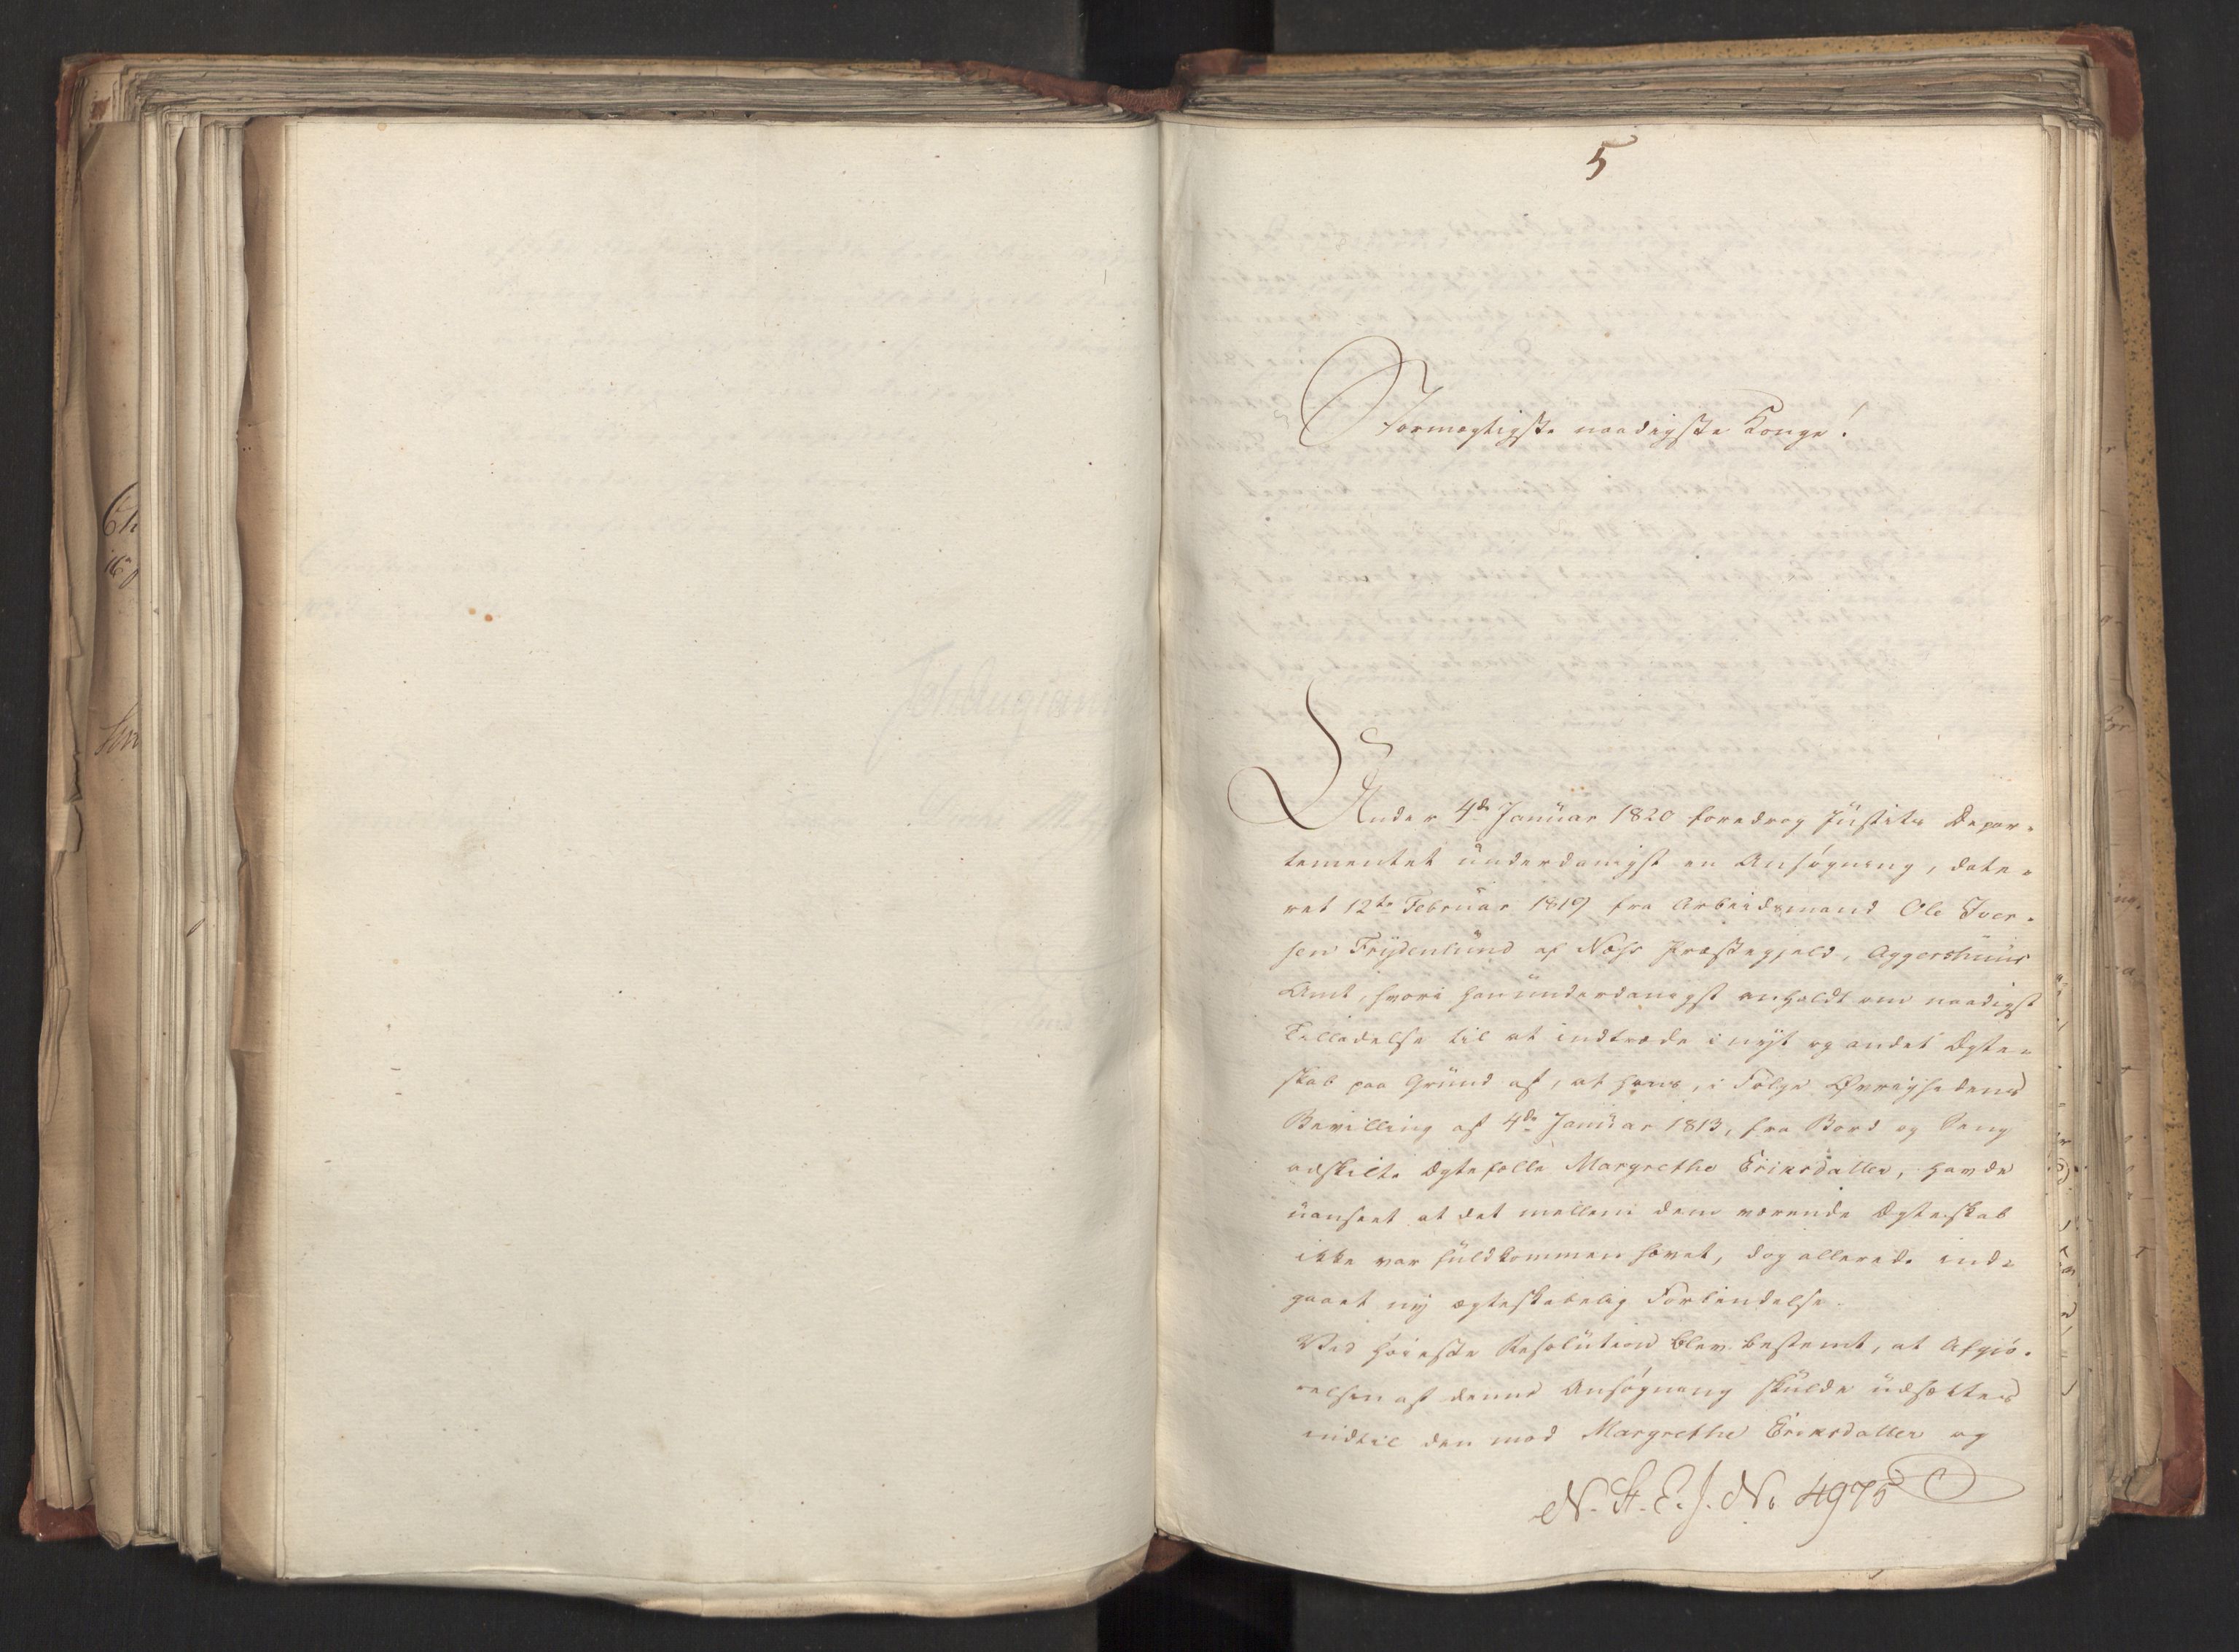 5
Stormægtigste naadigste Konge!
Under 4de Januar 1820 foredrog Justits Depar-
tementet underdanigst en Ansøgning, date-
ret 12te Februar 1819 fra Arbeidsmand Ole Iver-
sen Frydenlund af Næss Præstegjeld, Aggershuus
Amt, hvori han underdanigst anholdt om naadigst
Tilladelse til at indtræde i nyt og andet Ægte-
skab paa Grund af, at hans, i Følge Øvrighedens
Bevilling af 4de Januar 1813, fra Bord og Seng
adskilte Ægtefælle Margrethe Eriksdatter, havde
uanseet at det mellem dem værende Ægteskab
ikke var fuldkommen hævet, dog allerede ind-
gaaet ny ægteskabelig Forbindelse.
Ved høieste Resolution blev bestemt, at Afgiø-
relsen af denne Ansøgning skulde udsættes
indtil den mod Margrethe Eriksdatter og
N. St. E. J. No 4975